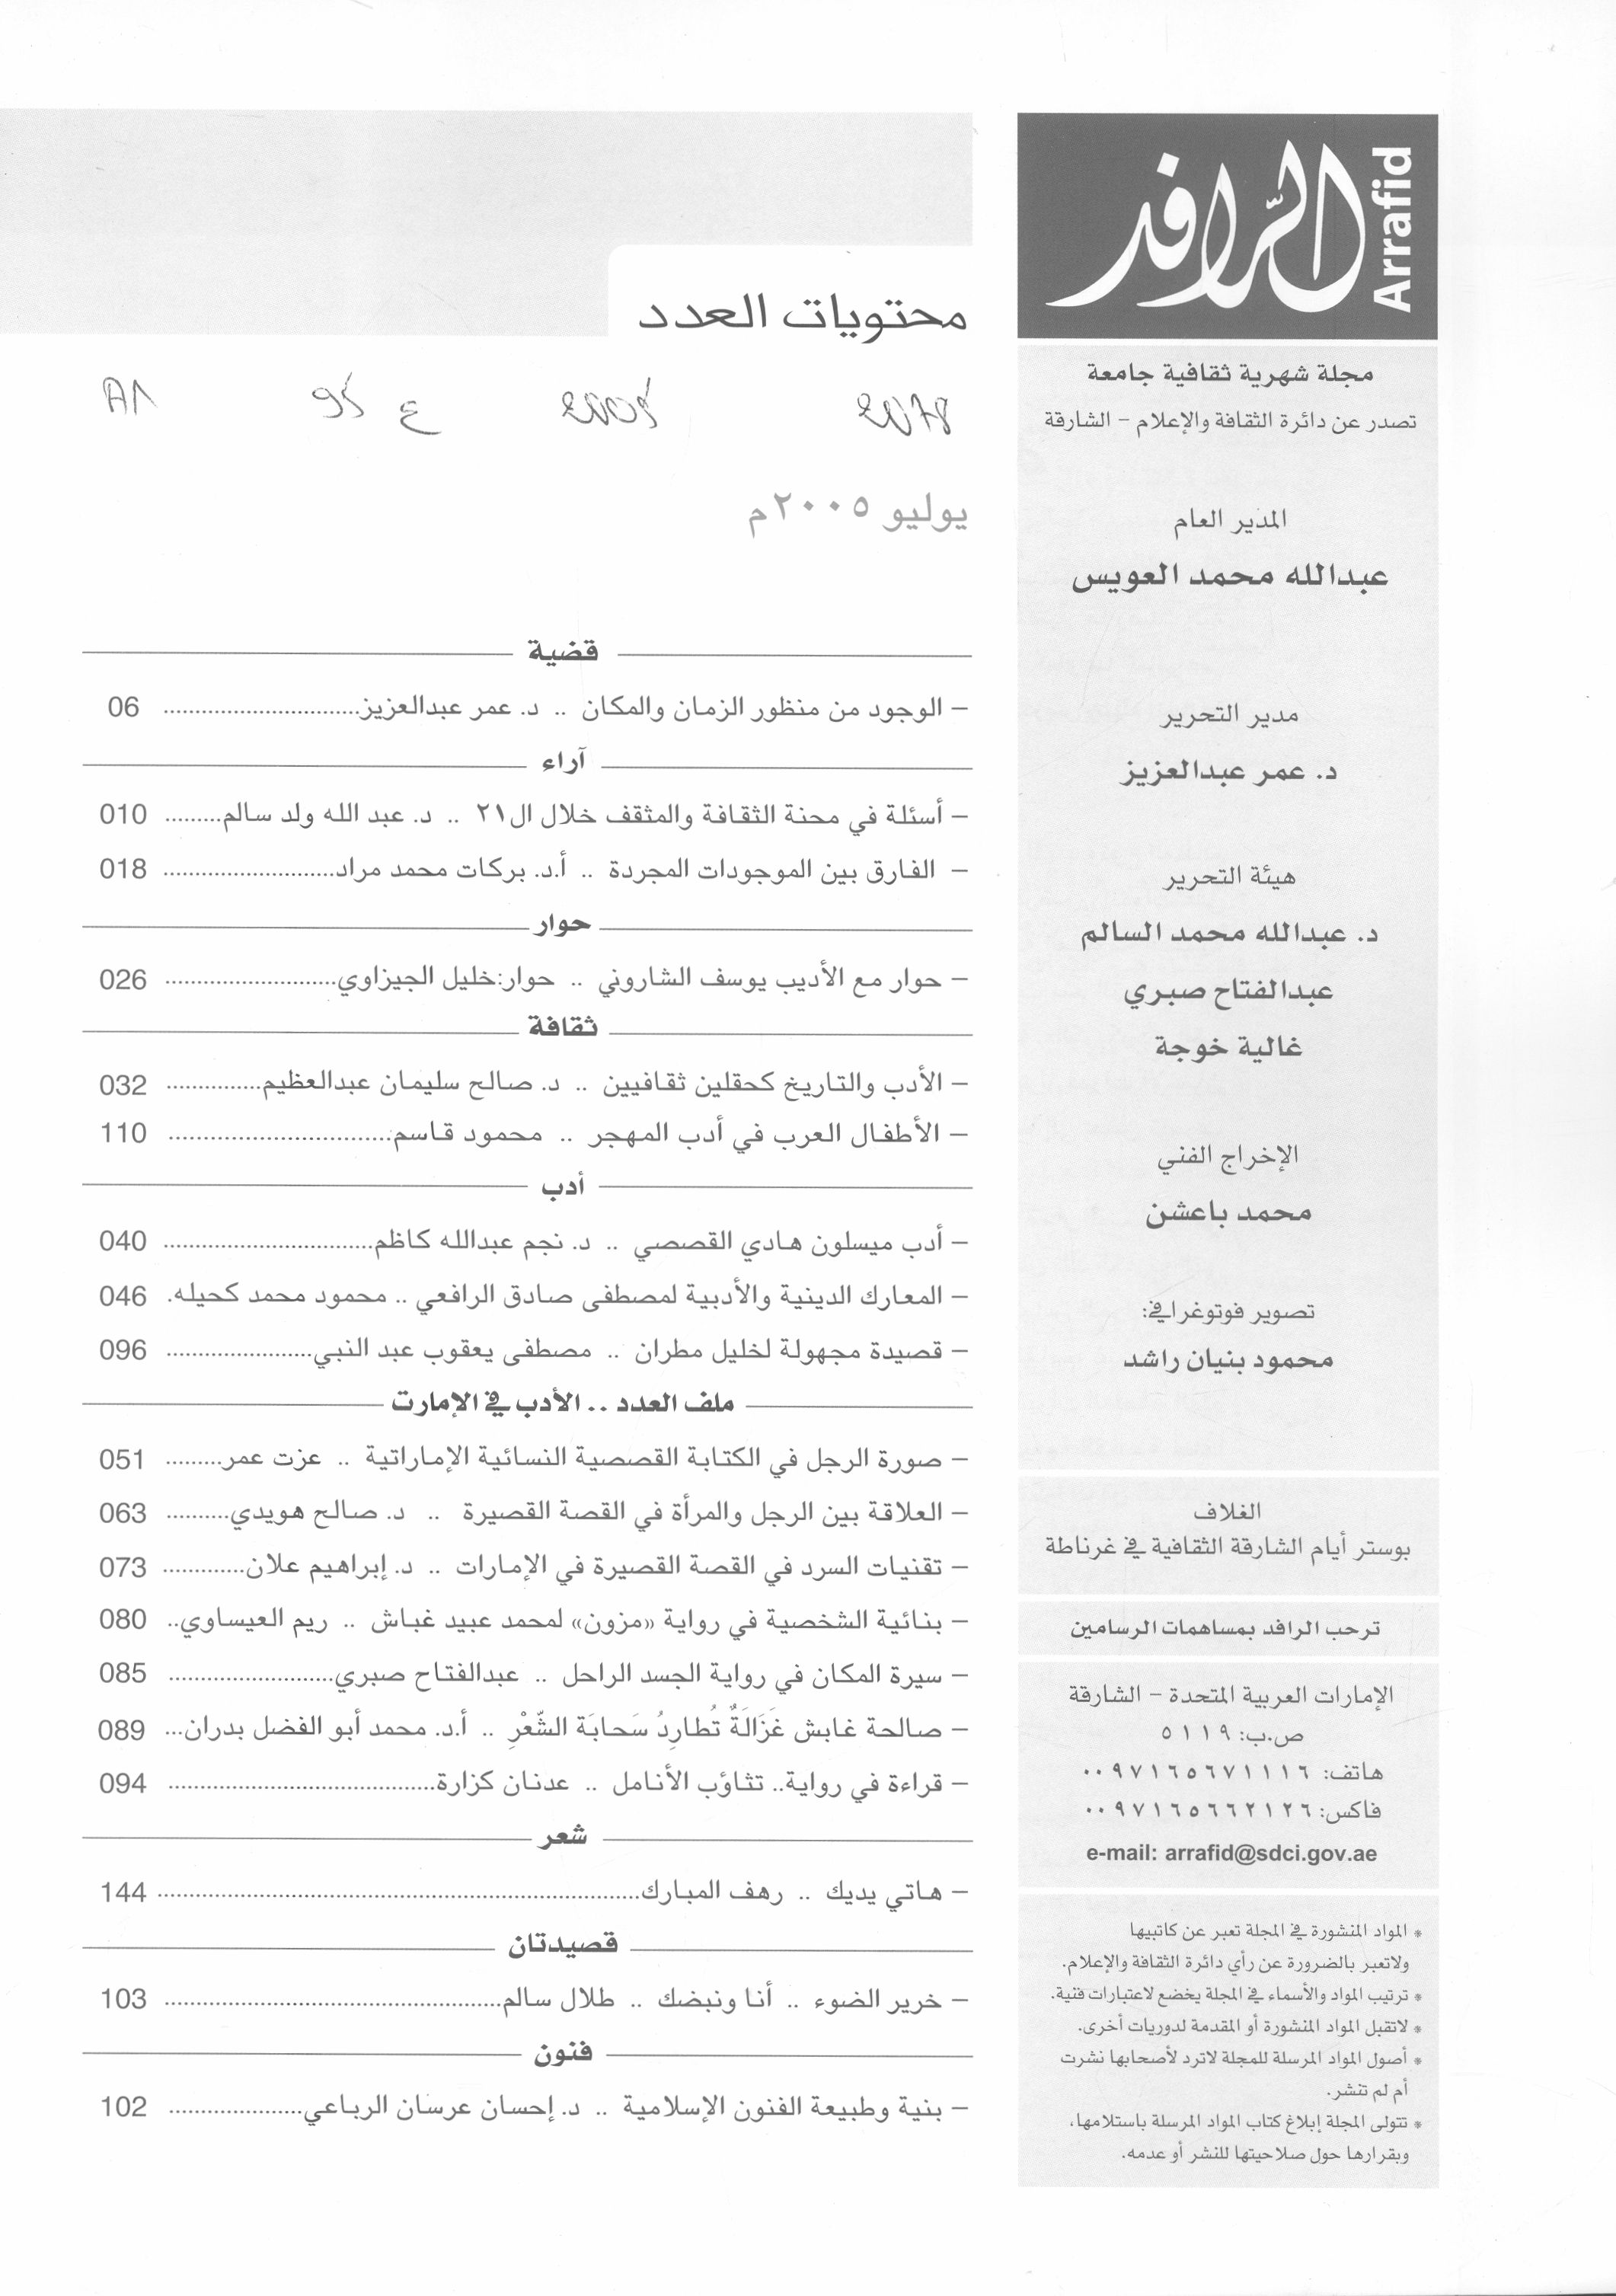 الرافد
Arrafid
مجلة شهرية ثقافية جامعة
تصدر عن دائرة الثقافة والإعلام – الشارقة
المدير العام
عبدالله محمد العويس
مدير التحرير
د. عمر عبدالعزيز
هيئة التحرير
د. عبدالله محمد السالم
عبدالفتاح صبري
غالية خوجة
الإخراج الفني
محمد باعشن
تصوير فوتوغرافي:
محمود بنيان راشد
الغلاف
بوستر أيام الشارقة الثقافية في غرناطة
ترحب الرافد بمساهمات الرسامين
الإمارات العربية المتحدة – الشارقة
ص.ب: ٥١١٩
هاتف: ٠٠٩٧١٦٥٦٧١١١٦
فاكس: ٠٠٩٧١٦٥٦٦٢١٢٦
e-mail: arrafid@sdci.gov.ae
* المواد المنشورة في المجلة تعبر عن كاتبيها
ولاتعبر بالضرورة عن رأي دائرة الثقافة والإعلام.
* ترتيب المواد والأسماء في المجلة يخضع لاعتبارات فنية.
* لاتقبل المواد المنشورة أو المقدمة لدوريات أخرى.
* أصول المواد المرسلة للمجلة لاترد لأصحابها نشرت
أم لم تنشر.
* تتولى المجلة إبلاغ كتاب المواد المرسلة باستلامها،
وبقرارها حول صلاحيتها للنشر أو عدمه.
محتويات العدد
2078 2005 ع 95
يوليو ٢٠٠٥م
قضية
– الوجود من منظور الزمان والمكان .. د. عمر عبدالعزيز............................ 06
آراء
– أسئلة في محنة الثقافة والمثقف خلال ال٢١ .. د. عبد الله ولد سالم......... 010
– الفارق بين الموجودات المجردة .. أ.د. بركات محمد مراد......................... 018
حوار
– حوار مع الأديب يوسف الشاروني .. حوار:خليل الجيزاوي......................... 026
ثقافة
– الأدب والتاريخ كحقلين ثقافيين .. د. صالح سليمان عبدالعظيم.............. 032
– الأطفال العرب في أدب المهجر .. محمود قاسم................................. 110
أدب
– أدب ميسلون هادي القصصي .. د. نجم عبدالله كاظم.............................. 040
– المعارك الدينية والأدبية لمصطفى صادق الرافعي .. محمود محمد كحيله. 046
– قصيدة مجهولة لخليل مطران .. مصطفى يعقوب عبد النبي..................... 096
ملف العدد .. الأدب في الإمارت
– صورة الرجل في الكتابة القصصية النسائية الإماراتية .. عزت عمر......... 051
– العلاقة بين الرجل والمرأة في القصة القصيرة .. د. صالح هويدي.......... 063
– تقنيات السرد في القصة القصيرة في الإمارات .. د. إبراهيم علان............ 073
– بنائية الشخصية في رواية «مزون» لمحمد عبيد غباش .. ريم العيساوي.. 080
– سيرة المكان في رواية الجسد الراحل .. عبدالفتاح صبري........................ 085
– صالحة غابش غَزَالَةٌ تُطارِدُ سَحابَة الشّعْرِ .. أ.د. محمد أبو الفضل بدران... 089
– قراءة في رواية.. تثاؤب الأنامل .. عدنان كزارة...................................... 094
شعر
– هاتي يديك .. رهف المبارك...................................................................... 144
قصيدتان
– خرير الضوء .. أنا ونبضك .. طلال سالم................................................. 103
فنون
– بنية وطبيعة الفنون الإسلامية .. د. إحسان عرسان الرباعي.................... 102